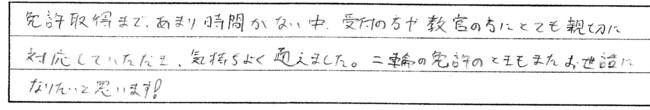 免許取得まで、あまり時間がない中、受付の方や教官の方にとても親切に
対応していただき、気持ちよく通えました。二輪の免許のときもまたお世話に
なりたいと思います!